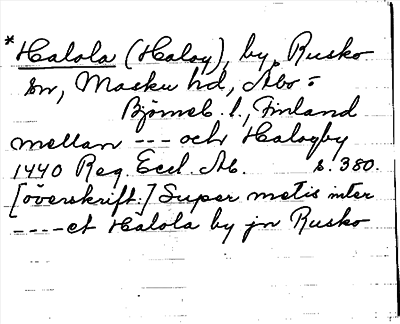 *Halola (Haloy), by, Rusko
sn, Masku hd, Åbo o
Björneb. l., Finland
mellan --- och Halogby
1440 Reg. Eccl. Ab. s. 380.
[överskrift:] Super metis inter
----et Halola by jn Rusko